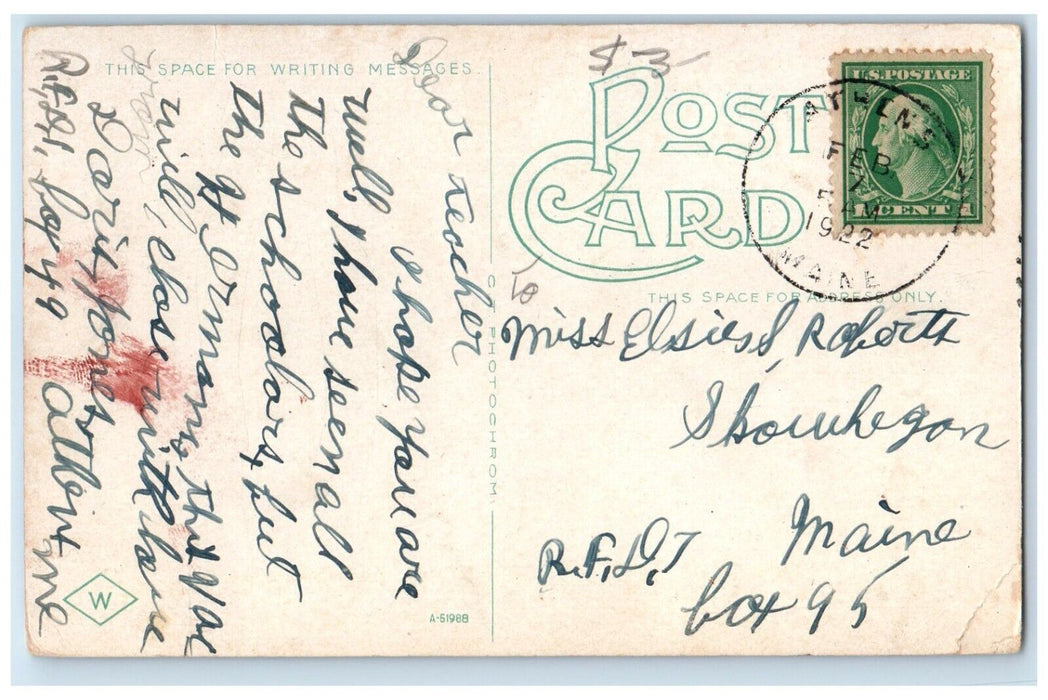 THIS SPACE FOR WRITING MESSAGES.
Dear teacher
I hope you are
well, I have seen all
the schoolars but
the H
will close with love
from
Doris Jones
R.F.D.1, box 49
Athens, me
W
A-51988
C. T. PHOTOCHROM
$ 3
POST
CARD
THIS SPACE FOR ADDRESS ONLY.
U.S. POSTAGE
1 CENT 1
ATHENS
FEB
7
AM
1922
MAINE
To
Miss Elsie S. Roberts
Skowhegan
Maine
R.F.D.7
box 95